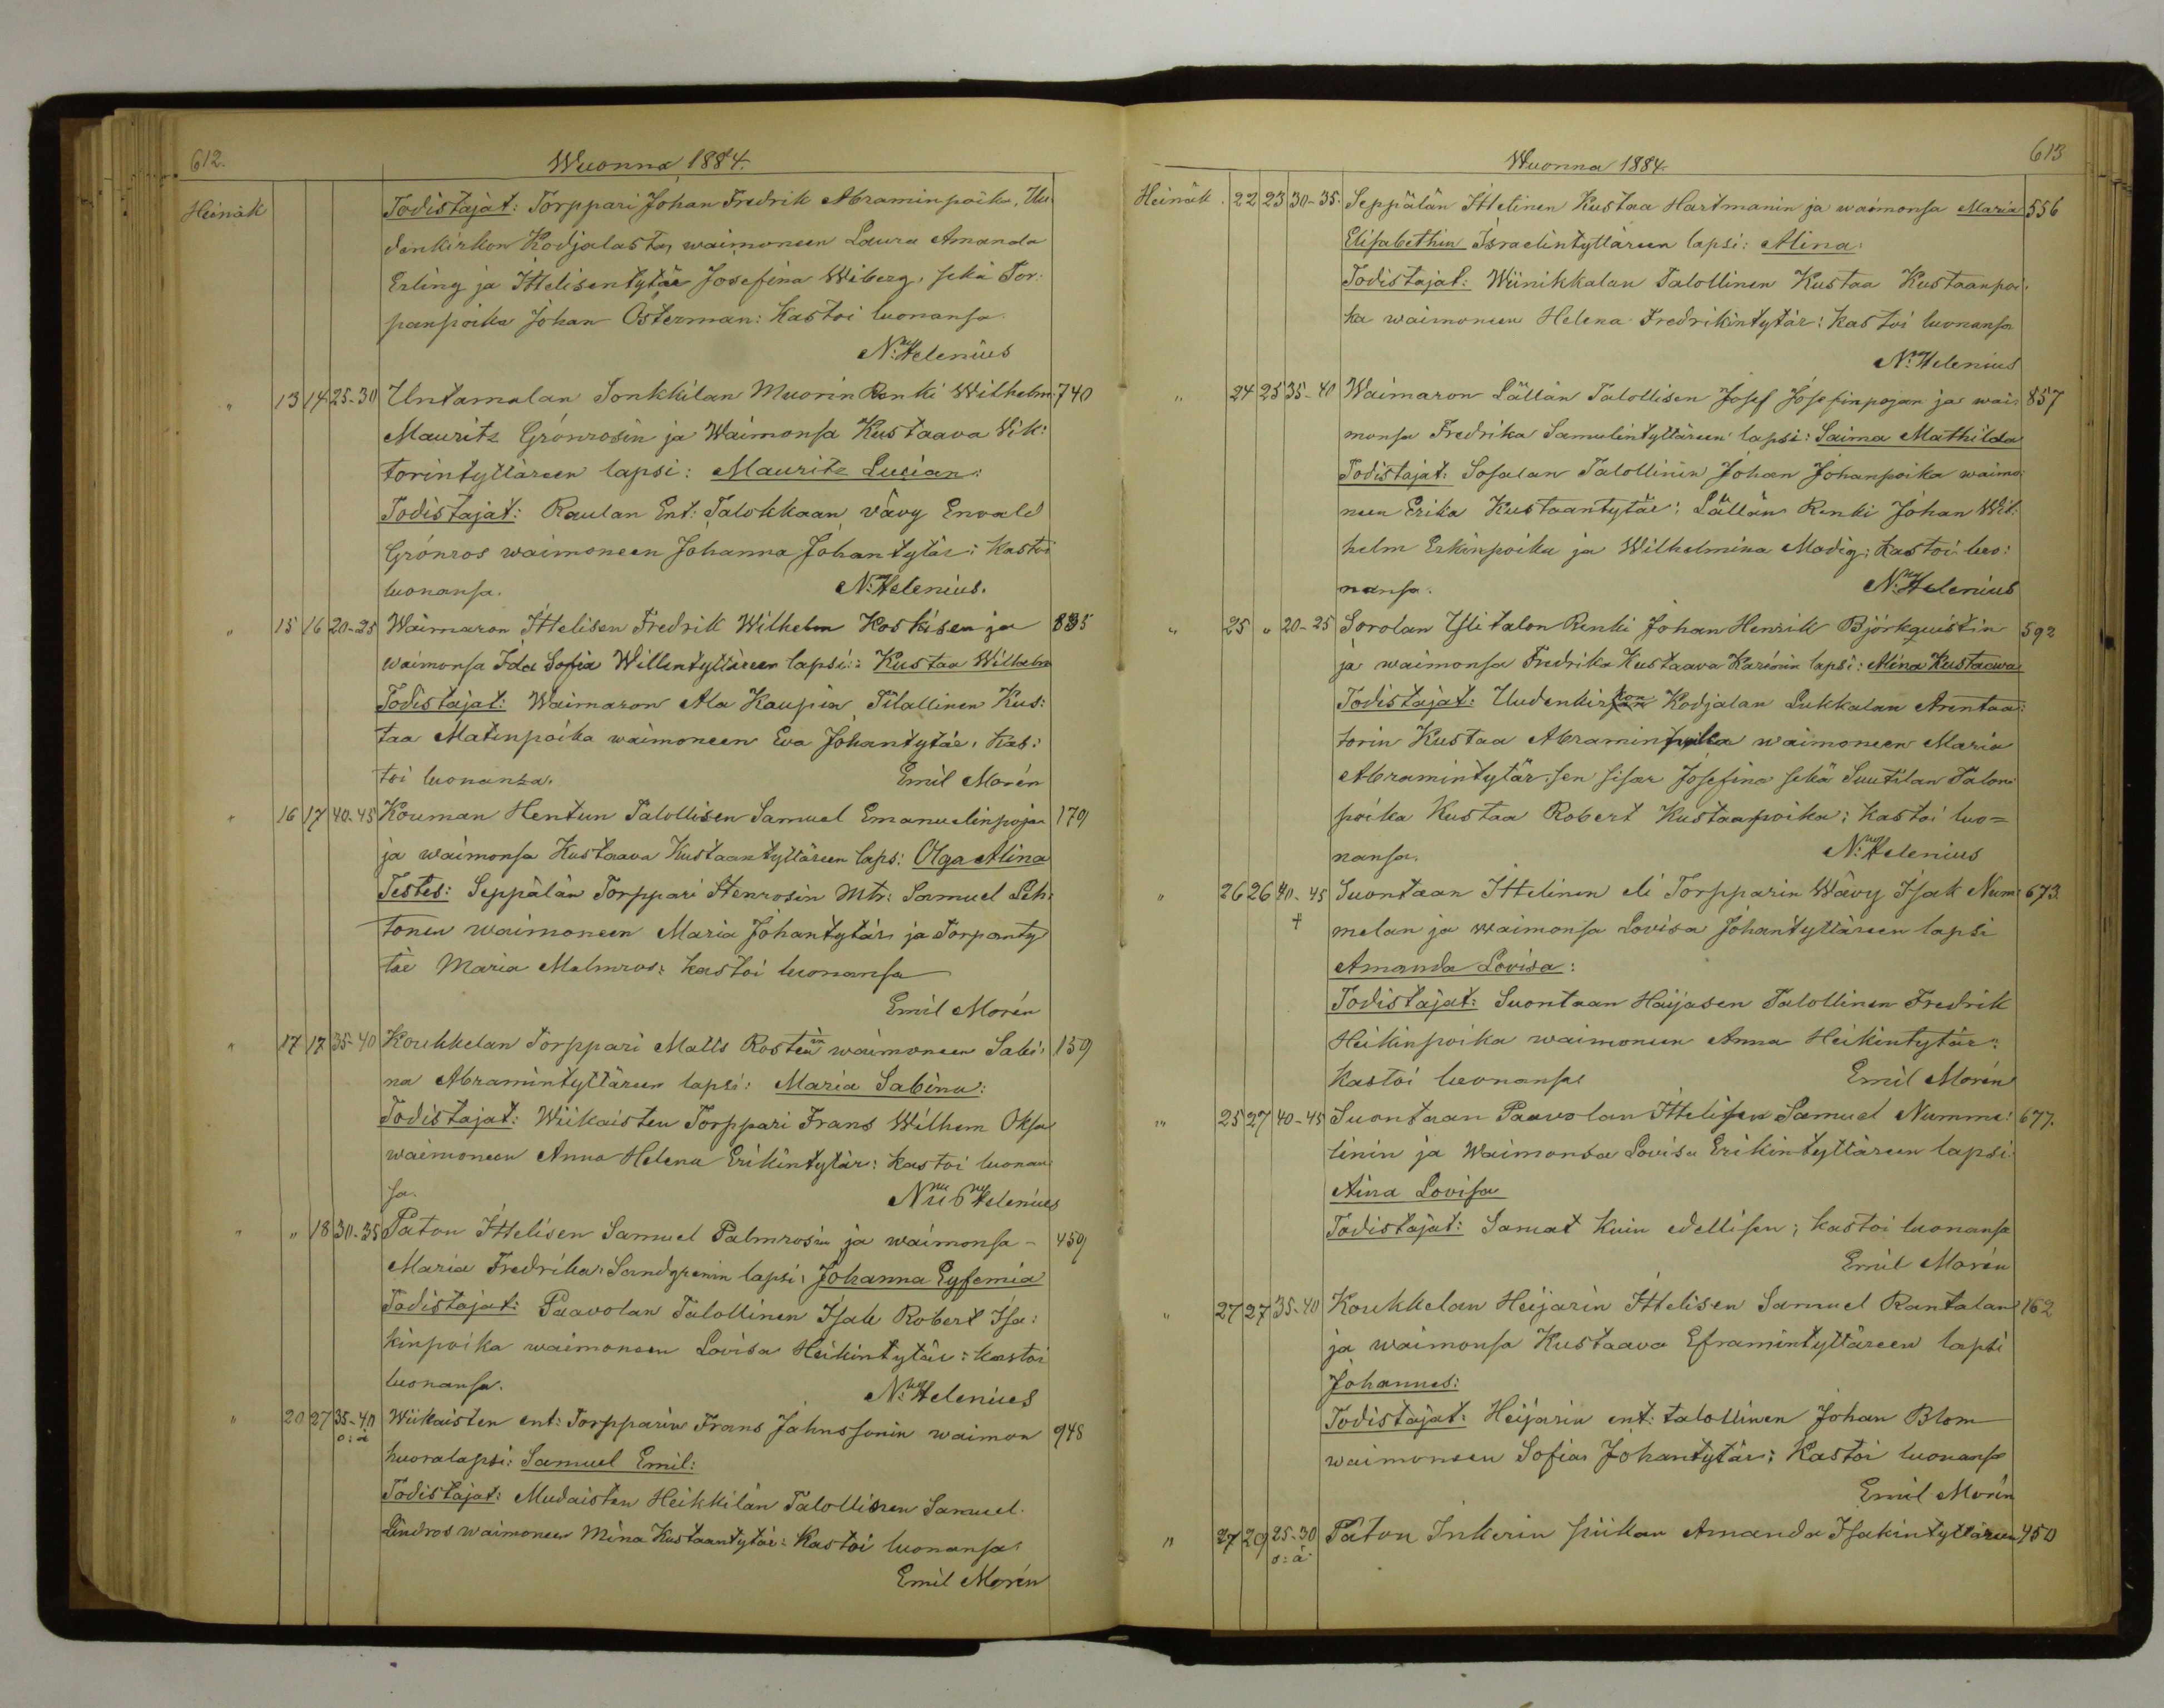 612.
Wuonna 1884.
Heinäk
Todistajat: Torppari Johan Fredrik Abraminpoika, Uu
denkirkon Kodjalasta, waimoneen Laura Amanda
Erling ja Ittelisentytär Josefina Wiberg, sekä Tor:
panpoika Johan Österman: Kastoi luonansa.
N: Helenius
" 13 14 25-30 Untamalan Jonkkilan Muorin Renki Wilhelm 740
Mauritz Grönrosin ja Waimonsa Kustaava Wik:
torintyttäreen lapsi: Mauritz Lucian:
Todistajat: Raulan Ent: Talokkaan vävy Enwald
Grönros waimoneen Johanna Johantytär: Kastoi
luonansa. N: Helenius.
" 15 16 20-25 Waimaron Ittelisen Fredrik Wilhelm Koskisen ja 835
waimonsa Ida Sofia Willentyttäreen lapsi: Kustaa Wilhelm
Todistajat: Waimaron Ala Kaupin Tilallinen Kus:
taa Matinpoika waimoneen Eva Johantytär, Kas:
toi luonansa. Emil Morén
" 16 17 40-45 Kouman Hentun Talollisen Samuel Emanuelinpojan 179
ja waimonsa Kustaava Kustaantyttäreen laps: Olga Alina
Testes: Seppälän Torppari Stenrosin Mtr: Samuel Leh:
tonen waimoneen Maria Johantytär, ja Torpanty
tär Maria Malmros: kastoi luonansa
Emil Morén
" 17 17 35-40 Koukkelan Torppari Matts Rostenin waimoneen Sabi: 159
na Abramintyttäreen lapsi: Maria Sabina:
Todistajat: Wiikaisten Torppari Frans Wilhem Oksa
waimoneen Anna Helena Erikintytär: Kastoi luonan
sa. Helenius
" " 18 30-35 Paton Ittelisen Samuel Palmrosin ja waimonsa - 459
Maria Fredrika Sandgrenin lapsi: Johanna Eyfemia
Todistajat: Paavolan Talollinen Isak Robert Isa:
kinpoika waimoneen Lovisa Heikintytär: kastoi
luonansa. N: Helenius
" 20 27 35-40 Wiikaisten ent: Torpparin Frans Jahnssonin waimon 948
o: ä
huoralapsi: Samuel Emil:
Todistajat: Mudaisten Heikkilän Talollisen Samuel
Lindros waimoneen Mina Kustaantytär: Kastoi luonansa.
Emil Morén
613
Wuonna 1884.
Heinäk. 22 23 30-35. Seppälän Ittelinen Kustaa Hartmanin ja waimonsa Maria 556
Elisabethin Israelintyttäreen lapsi: Alina:
Todistajat: Wiinikkalan Talollinen Kustaa Kustaanpoi:
ka waimoneen Helena Fredrikintytär: Kastoi luonansa
N: Helenius
" 24 25 35-40 Waimaron Lällän Talollisen Josef Josefinpojan ja wai: 857
monsa Fredrika Samulintyttäreen lapsi: Saima Mathilda
Todistajat: Sosalan Talollinen Johan Johanpoika waimo:
neen Erika Kustaantytär: Lällän Renki Johan Wil:
helm Erkinpoika ja Wilhelmina Modig: Kastoi luo:
nansa. N: Helenius
" 25 " 20-25 Sorolan Ylitalon Renki Johan Henrik Björkquistin 592
ja waimonsa Fredrika Kustaava Karinin lapsi: Mina Kustaawa
Todistajat: Uudenkirkon Kodjalan Lukkalan Arentaa:
torin Kustaa Abraminpoika waimoneen Maria
Abramintytär, sen sisar Josefina sekä Suutilan Talon:
poika Kustaa Robert Kustaanpoika: Kastoi luo=
nansa. N: Helenius
" 26 26 40-45 Suontaan Ittelinen eli Torpparin Wävy Isak Num: 673
†
melan ja waimonsa Lovisa Johantyttäreen lapsi
Amanda Lovisa:
Todistajat: Suontaan Häijäsen Talollinen Fredrik
Heikinpoika waimoneen Anna Heikintytär:
Kastoi luonansa Emil Morén
" 25 27 40-45 Suontaan Paavolan Ittelisen Samuel Numme: 677.
linin ja Waimonsa Lovisa Erikintyttäreen lapsi:
Aina Lovisa
Todistajat: Samat kuin edellisen; kastoi luonansa
Emil Morén
" 27 27 35-40 Koukkelan Heijarin Ittelisen Samuel Rantalan 162
ja waimonsa Kustaava Eframintyttäreen lapsi
Johannes:
Todistajat: Heijarin ent: talollinen Johan Blom
waimoneen Sofia Johantytär; Kastoi luonansa
Emil Morén
" 27 29 25-30 Paton Inkerin piikan Amanda Isakintyttäreen 450
o: ä